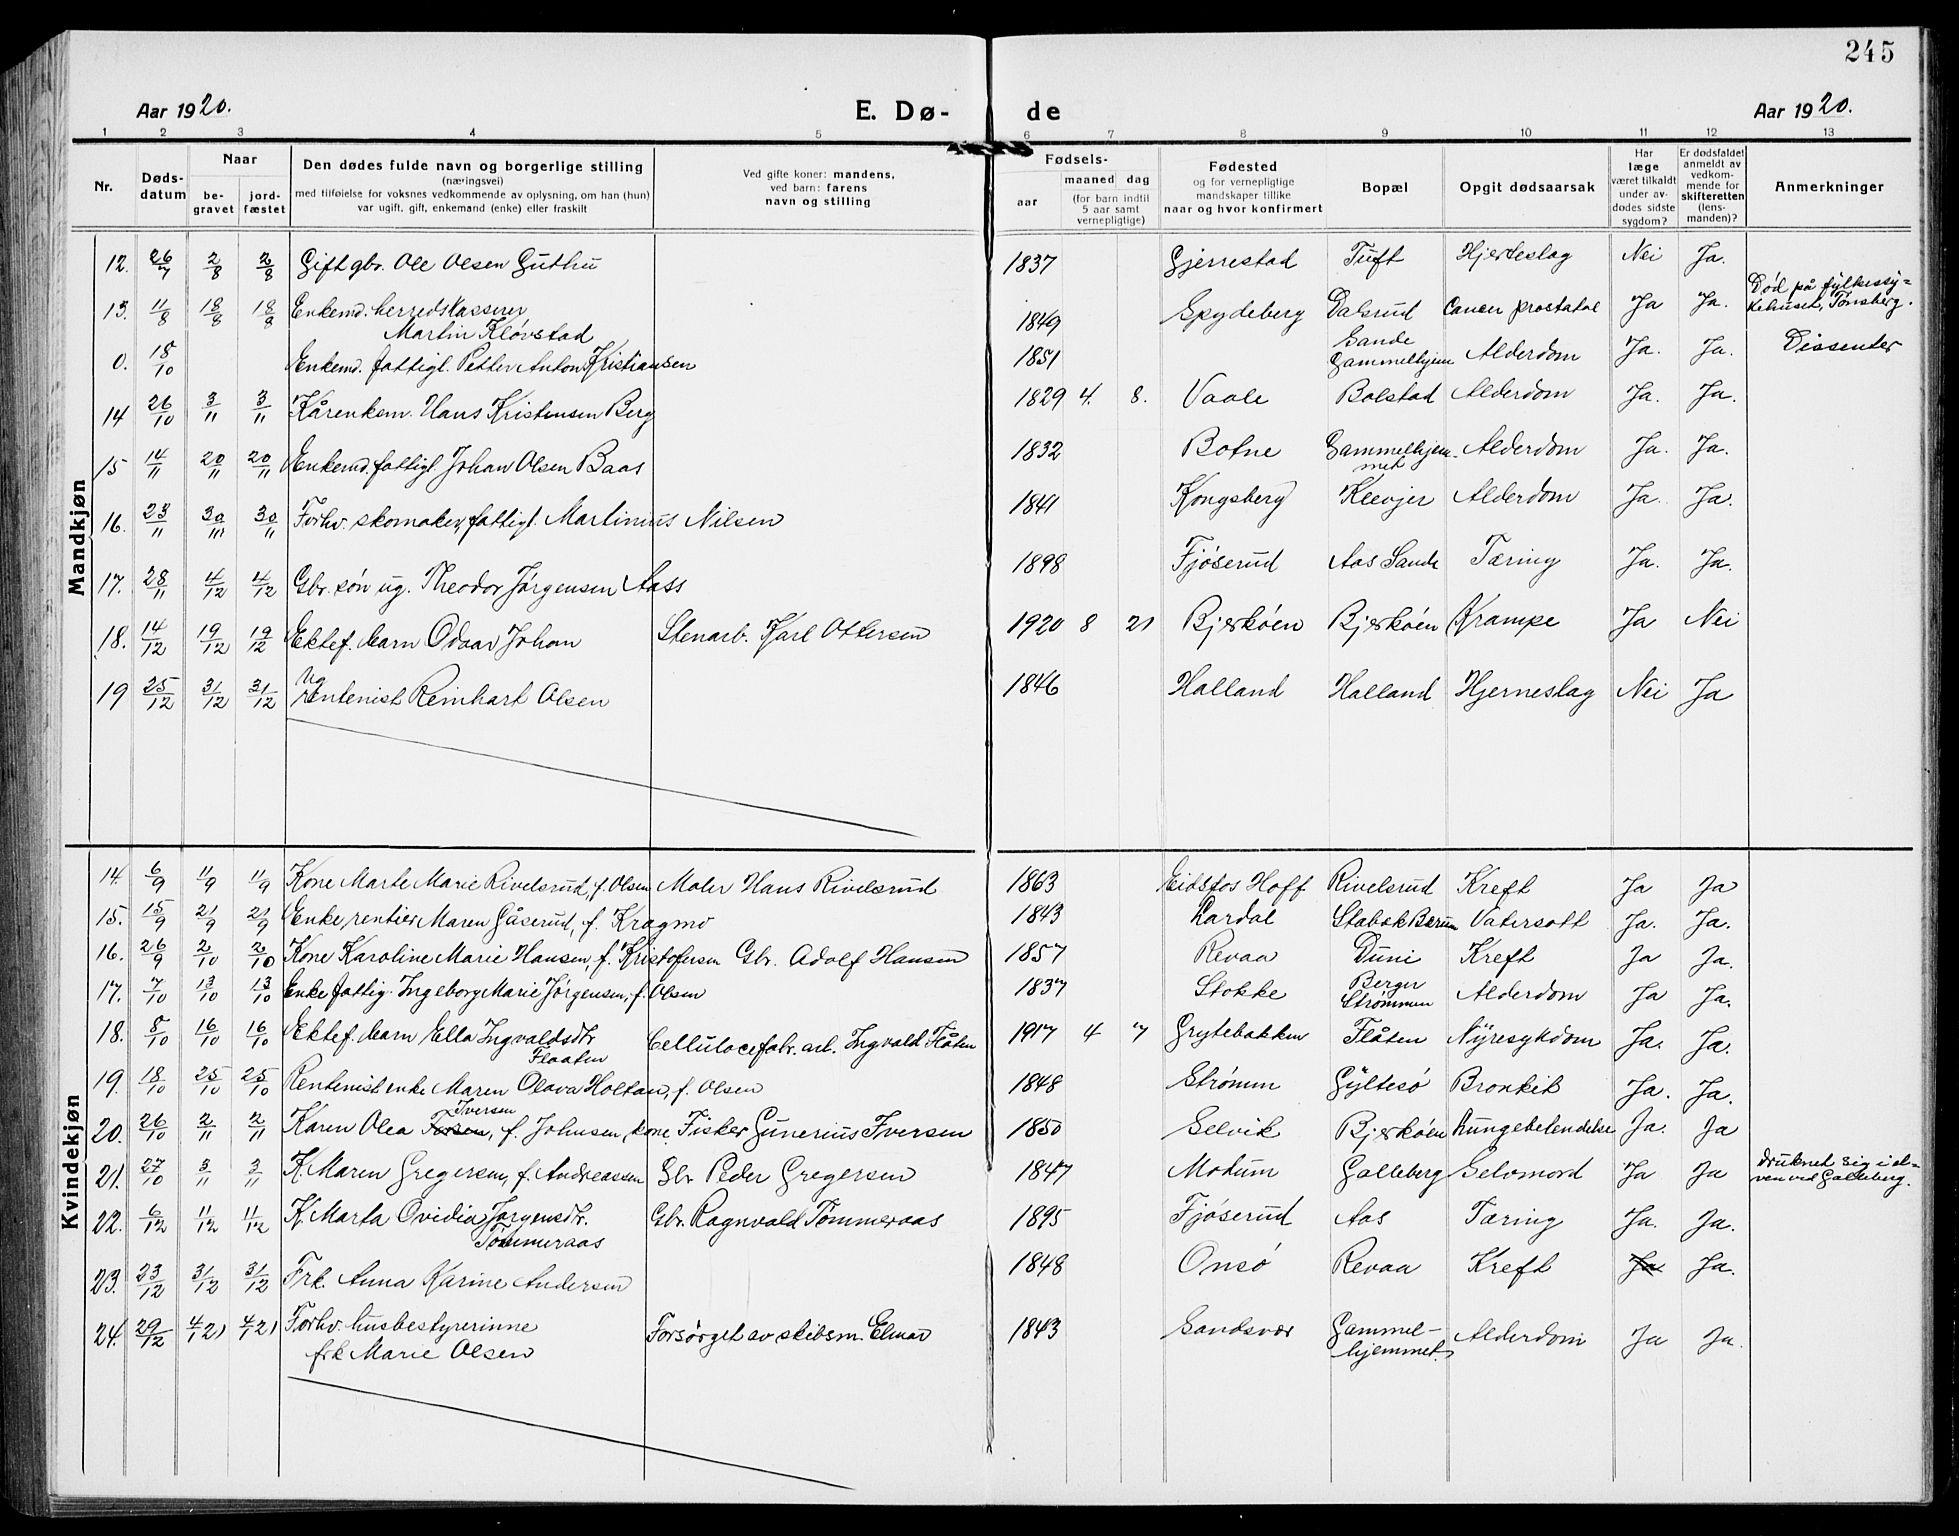 245
Aar 1920. E. Dø- de Aar 1920.
1 2 3 4 5 6 7 8 9 10 11 12 13
Nr. Døds-datum Naar be-gravet jord-fæstet Den dødes fulde navn og borgerlige stilling (næringsvei) med tilføielse for voksnes vedkommende av oplysning, om han (hun) var ugift, gift, enkemand (enke) eller fraskilt Ved gifte koner: mandens, ved barn: farens navn og stilling Fødsels- aar maaned dag (for barn indtil 5 aar samt vernepligtige) Fødested og for vernepligtige mandskaper tillike naar og hvor konfirmert Bopæl Opgit dødsaarsak Har læge været tilkaldt under av-dødes sidste sygdom? Er dødsfaldet anmeldt av vedkom-mende for skifteretten (lens-manden)? Anmerkninger
Mandkjøn
12. 26/7 2/8 2/8 Gift gbr. Ole Olsen Guthu 1837 Gjerrestad Tuft Hjerteslag Nei Ja.
13. 11/8 18/8 18/8 Enkemd. herredskasserer Martin Kløvstad 1849 Spydeberg Dalsrud Cancer prostatae Ja Ja. Død på fylkessy=kehuset, Tønsberg.
0. 18/10 Enkemd. fattigl. Petter Anton Kristiansen 1851 Sande Gammelhjem Alderdom Ja. Ja. Dissenter
14 26/10 3/11 3/11 Kårenkem. Hans Kristensen Berg 1829 4. 8. Vaale Bolstad Alderdom Ja. Ja.
15 14/11 20/11 20/11 Enkemd. fattigl. Johan Olsen Baas 1832 Botne Gammelhjem-met Alderdom Ja. Ja.
16. 23/11 30/11 30/11 Forhv. skomaker, fattigl. Martinius Nilsen 1841 Kongsberg Kleivjer Alderdom Ja. Ja.
17. 28/11 4/12 4/12 Gbr. søn ug. Theodor Jørgensen Aass 1898 Fjøserud Aas Sande Tæring Ja. Ja.
18. 14/12 19/12 19/12 Ektef. barn Odvar Johan Stenarb. Karl Ottersen 1920 8 21 Bjerkøen Bjerkøen Krampe Ja Nei
19 25/12 31/12 31/12 Ug rentenist Reinhart Olsen 1846 Halland Halland Hjerneslag Nei Ja
Kvindekjøn
14. 6/9 11/9 11/9 Kone Marte Marie Rivelsrud, f. Olsen Maler Hans Rivelsrud 1863 Eidsfos Hoff Rivelsrud Kreft Ja Ja
15. 15/9 21/9 21/9 Enke, rentier Maren Gåserud, f. Kragmo 1843 Lardal Stabæk Bærum Vatersott Ja. Ja.
16. 26/9 2/10 2/10 Kone Karoline Marie Hansen, f. Kristofersen Gbr. Adolf Hansen 1857 Revaa Duni Kreft Ja Ja.
17. 7/10 13/10 13/10 Enke fattig. Ingeborg Marie Jørgensen, f. Olsen 1837 Stokke Berger Strømmen Alderdom Ja Ja.
18. 8/10 16/10 16/10 Ektef. barn Ella Ingvaldsdtr. Flaaten Cellulocefabr. arb. Ingvald Flåten 1917 4 7 Grytebakken Flåten Nyresykdom Ja. Ja.
19. 18/10 25/10 25/10 Rentenist enke Maren Olava Holtan, f. Olsen 1848 Strømm Gyltesø Bronkit Ja. Ja.
20. 26/10 2/11 2/11 Karen Olea Iversen, f. Johnsen, kone. Fisker Gunerius Iversen 1850 Selvik Bjerkøen Lungebetendelse Ja. Ja
21. 27/10 3/11 3/11 K. Maren Gregersen, f. Andreassen Gbr Peder Gregersen 1847 Modum Galleberg Selvmord Ja Ja druknet sig i el=ven ved Galleberg.
22. 6/12 11/12 11/12 K. Marta Ovidia Jørgensdtr. Tømmeraas Gbr. Ragnvald Tømmeraas 1895 Fjøserud Aas Tæring Ja. Ja.
23. 23/12 31/12 31/12 Frk. Anna Karine Andersen 1848 Onsø Revaa Kreft Ja Ja.
24. 29/12 4/1 21 4/1 21 Forhv. husbestyrerinne frk Marie Olsen Forsørget av skibsm. Elnar 1843 Sandsvær Gammel-hjemmet. Alderdom Ja Ja.